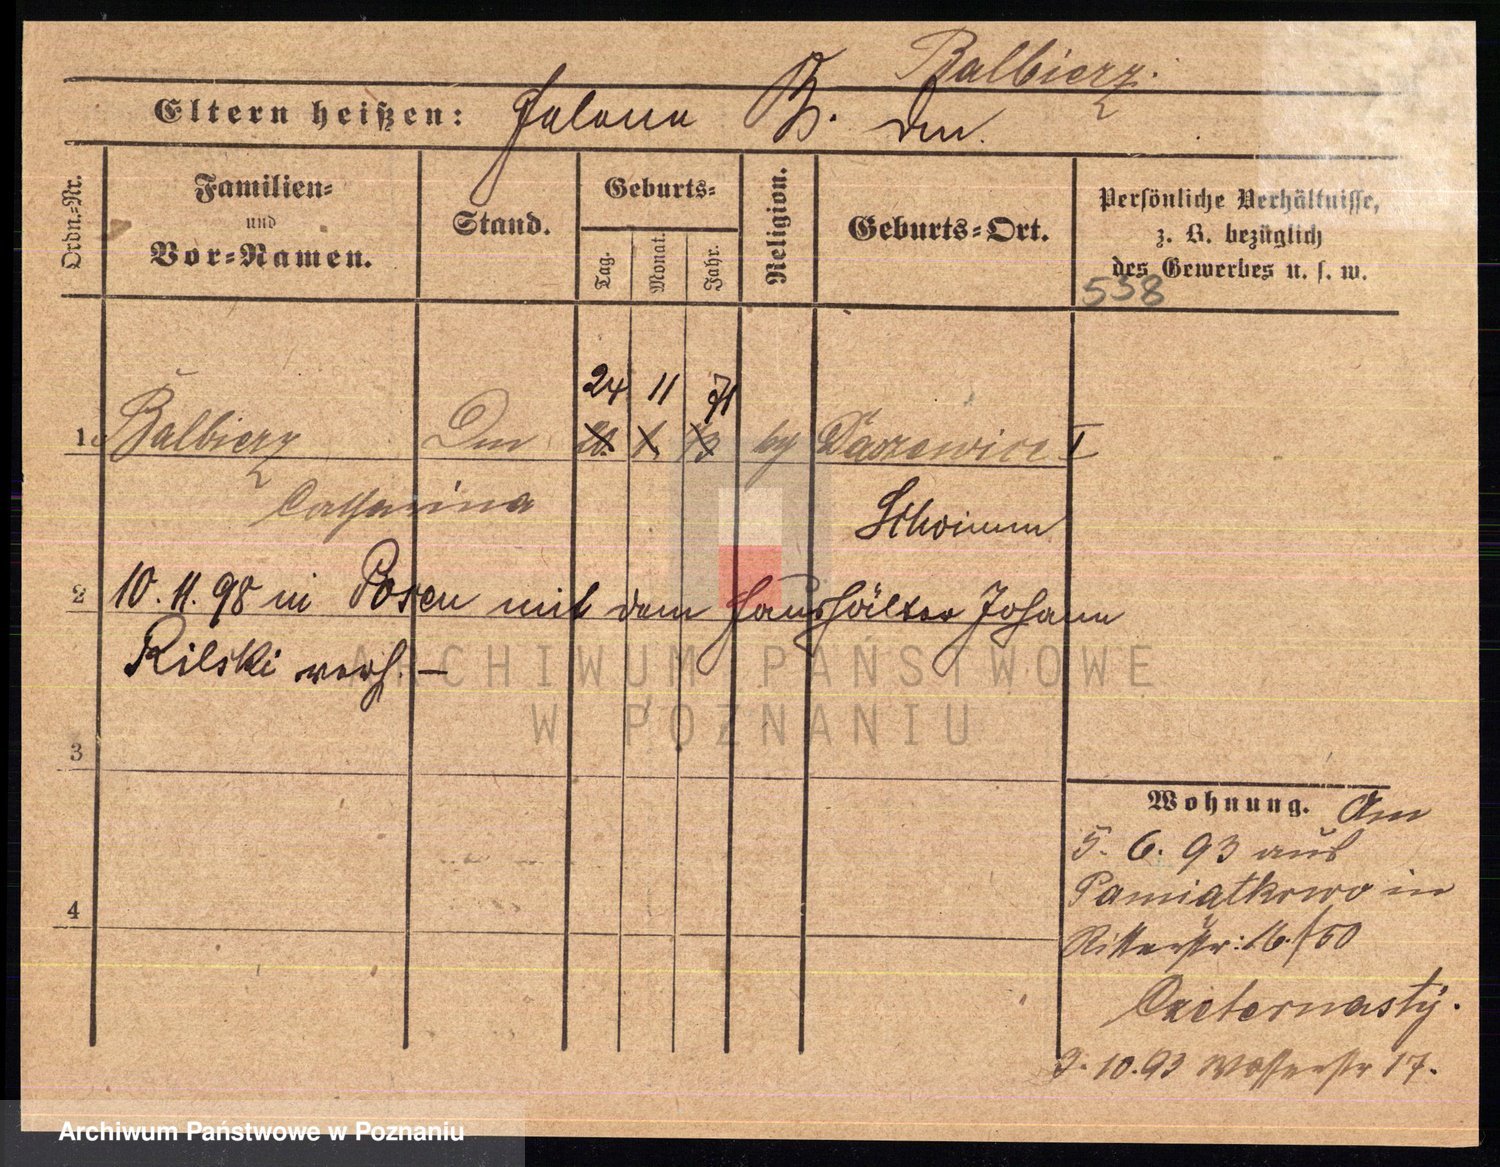 Balbierz.
Eltern heißen: Helene B. Dm.
Ordn.-Nr.
Familien- und Vor-Namen.
Stand.
Geburts-
Tag.
Monat.
Jahr.
Religion.
Geburts-Ort.
Persönliche Verhältnisse,
z. B. bezüglich
des Gewerbes u. s. w.
538
24 11 71
1. Balbierz Dm kg Daszewice I
Catharina Schrimm
2 10. 11. 98 in Posen mit dem Haushälter Johann
Rilski verh. —
ARCHIWUM PAŃSTWOWE
W POZNANIU
3
Wohnung. Am
5. 6. 93 aus
Pamiatkowo in
4
Ritterstr: 16/
3. 10. 93 Wasserstr 17.
Archiwum Państwowe w Poznaniu